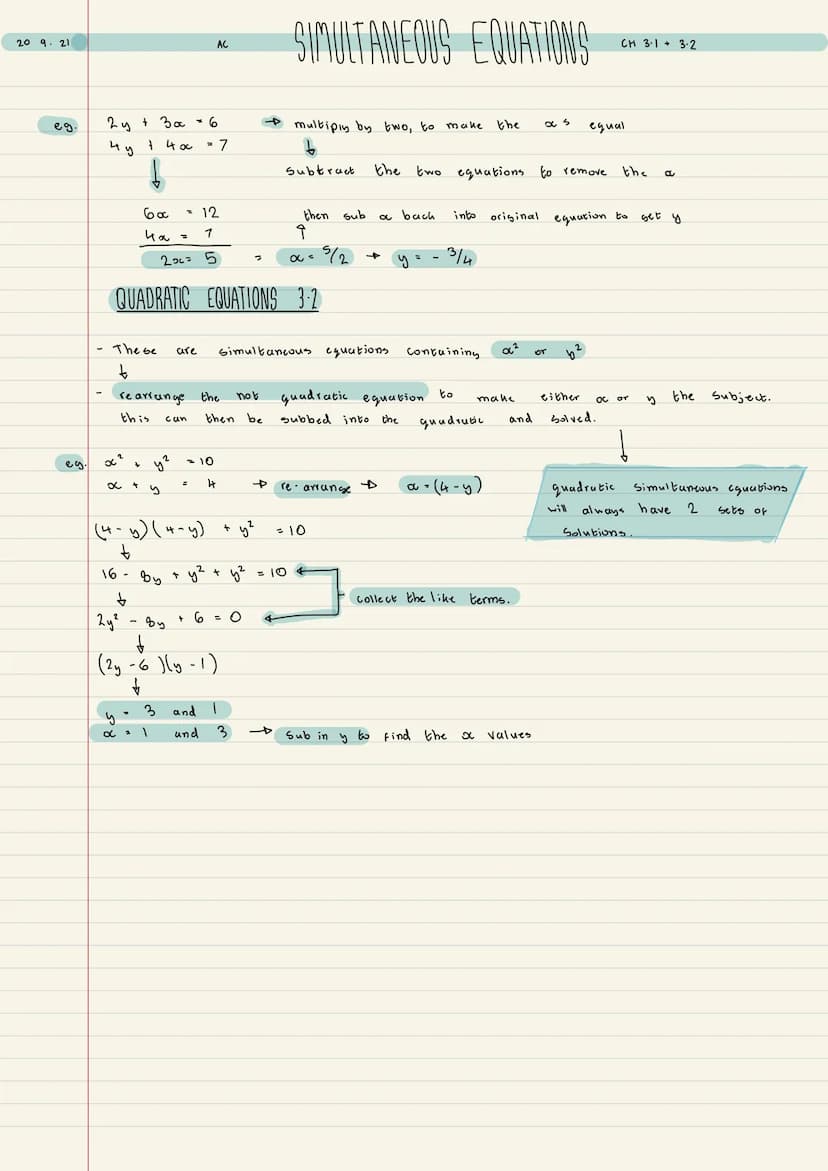 20 9.21 AC SIMULTANEOUS EQUATIONS CH 3.1 + 3.2
eg. 2y + 3x = 6 → multiply by two, to make the xs equal
4y + 4x = 7 ↓
↓ subtract the two equations to remove the x
6x = 12 then sub x back into original equation to get y
4x = 7 ↑
2x = 5 = x = 5/2 → y = - 3/4
QUADRATIC EQUATIONS 3.2
- These are simultaneous equations containing x² or y²
↓
- rearrange the not quadratic equation to make either x or y the subject.
this can then be subbed into the quadratic and solved.
eg. x² + y² = 10
x + y = 4 → re-arrange → x = (4 - y)
quadratic simultaneous equations
will always have 2 sets of
solutions.
(4 - y)(4 - y) + y² = 10
↓
16 - 8y + y² + y² = 10
↓ collect the like terms.
2y² - 8y + 6 = 0
↓
(2y - 6)(y - 1)
↓
y = 3 and 1
x = 1 and 3 → Sub in y to find the x values